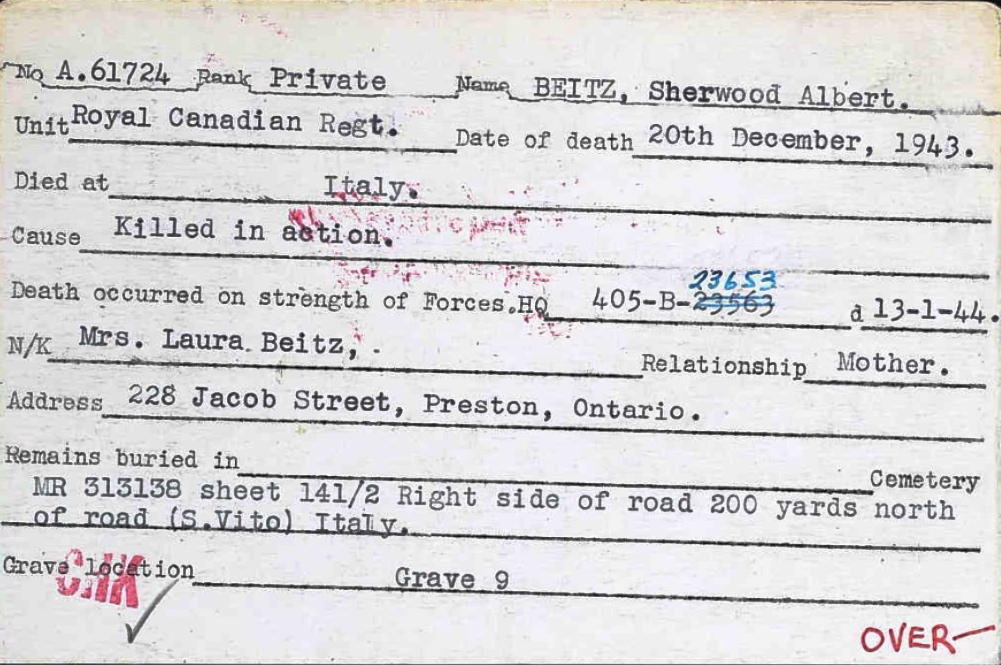 No A.61724 Rank Private Name BEITZ, Sherwood Albert.
Unit Royal Canadian Regt. Date of death 20th December, 1943.
Died at Italy.
Cause Killed in action.
23653
Death occurred on strength of Forces.HQ 405-B-23563 d 13-1-44.
N/K Mrs. Laura Beitz, . Relationship Mother.
Address 228 Jacob Street, Preston, Ontario.
Remains buried in Cemetery
MR 313138 sheet 141/2 Right side of road 200 yards north
of road (S.Vito) Italy.
Grave location Grave 9
OVER